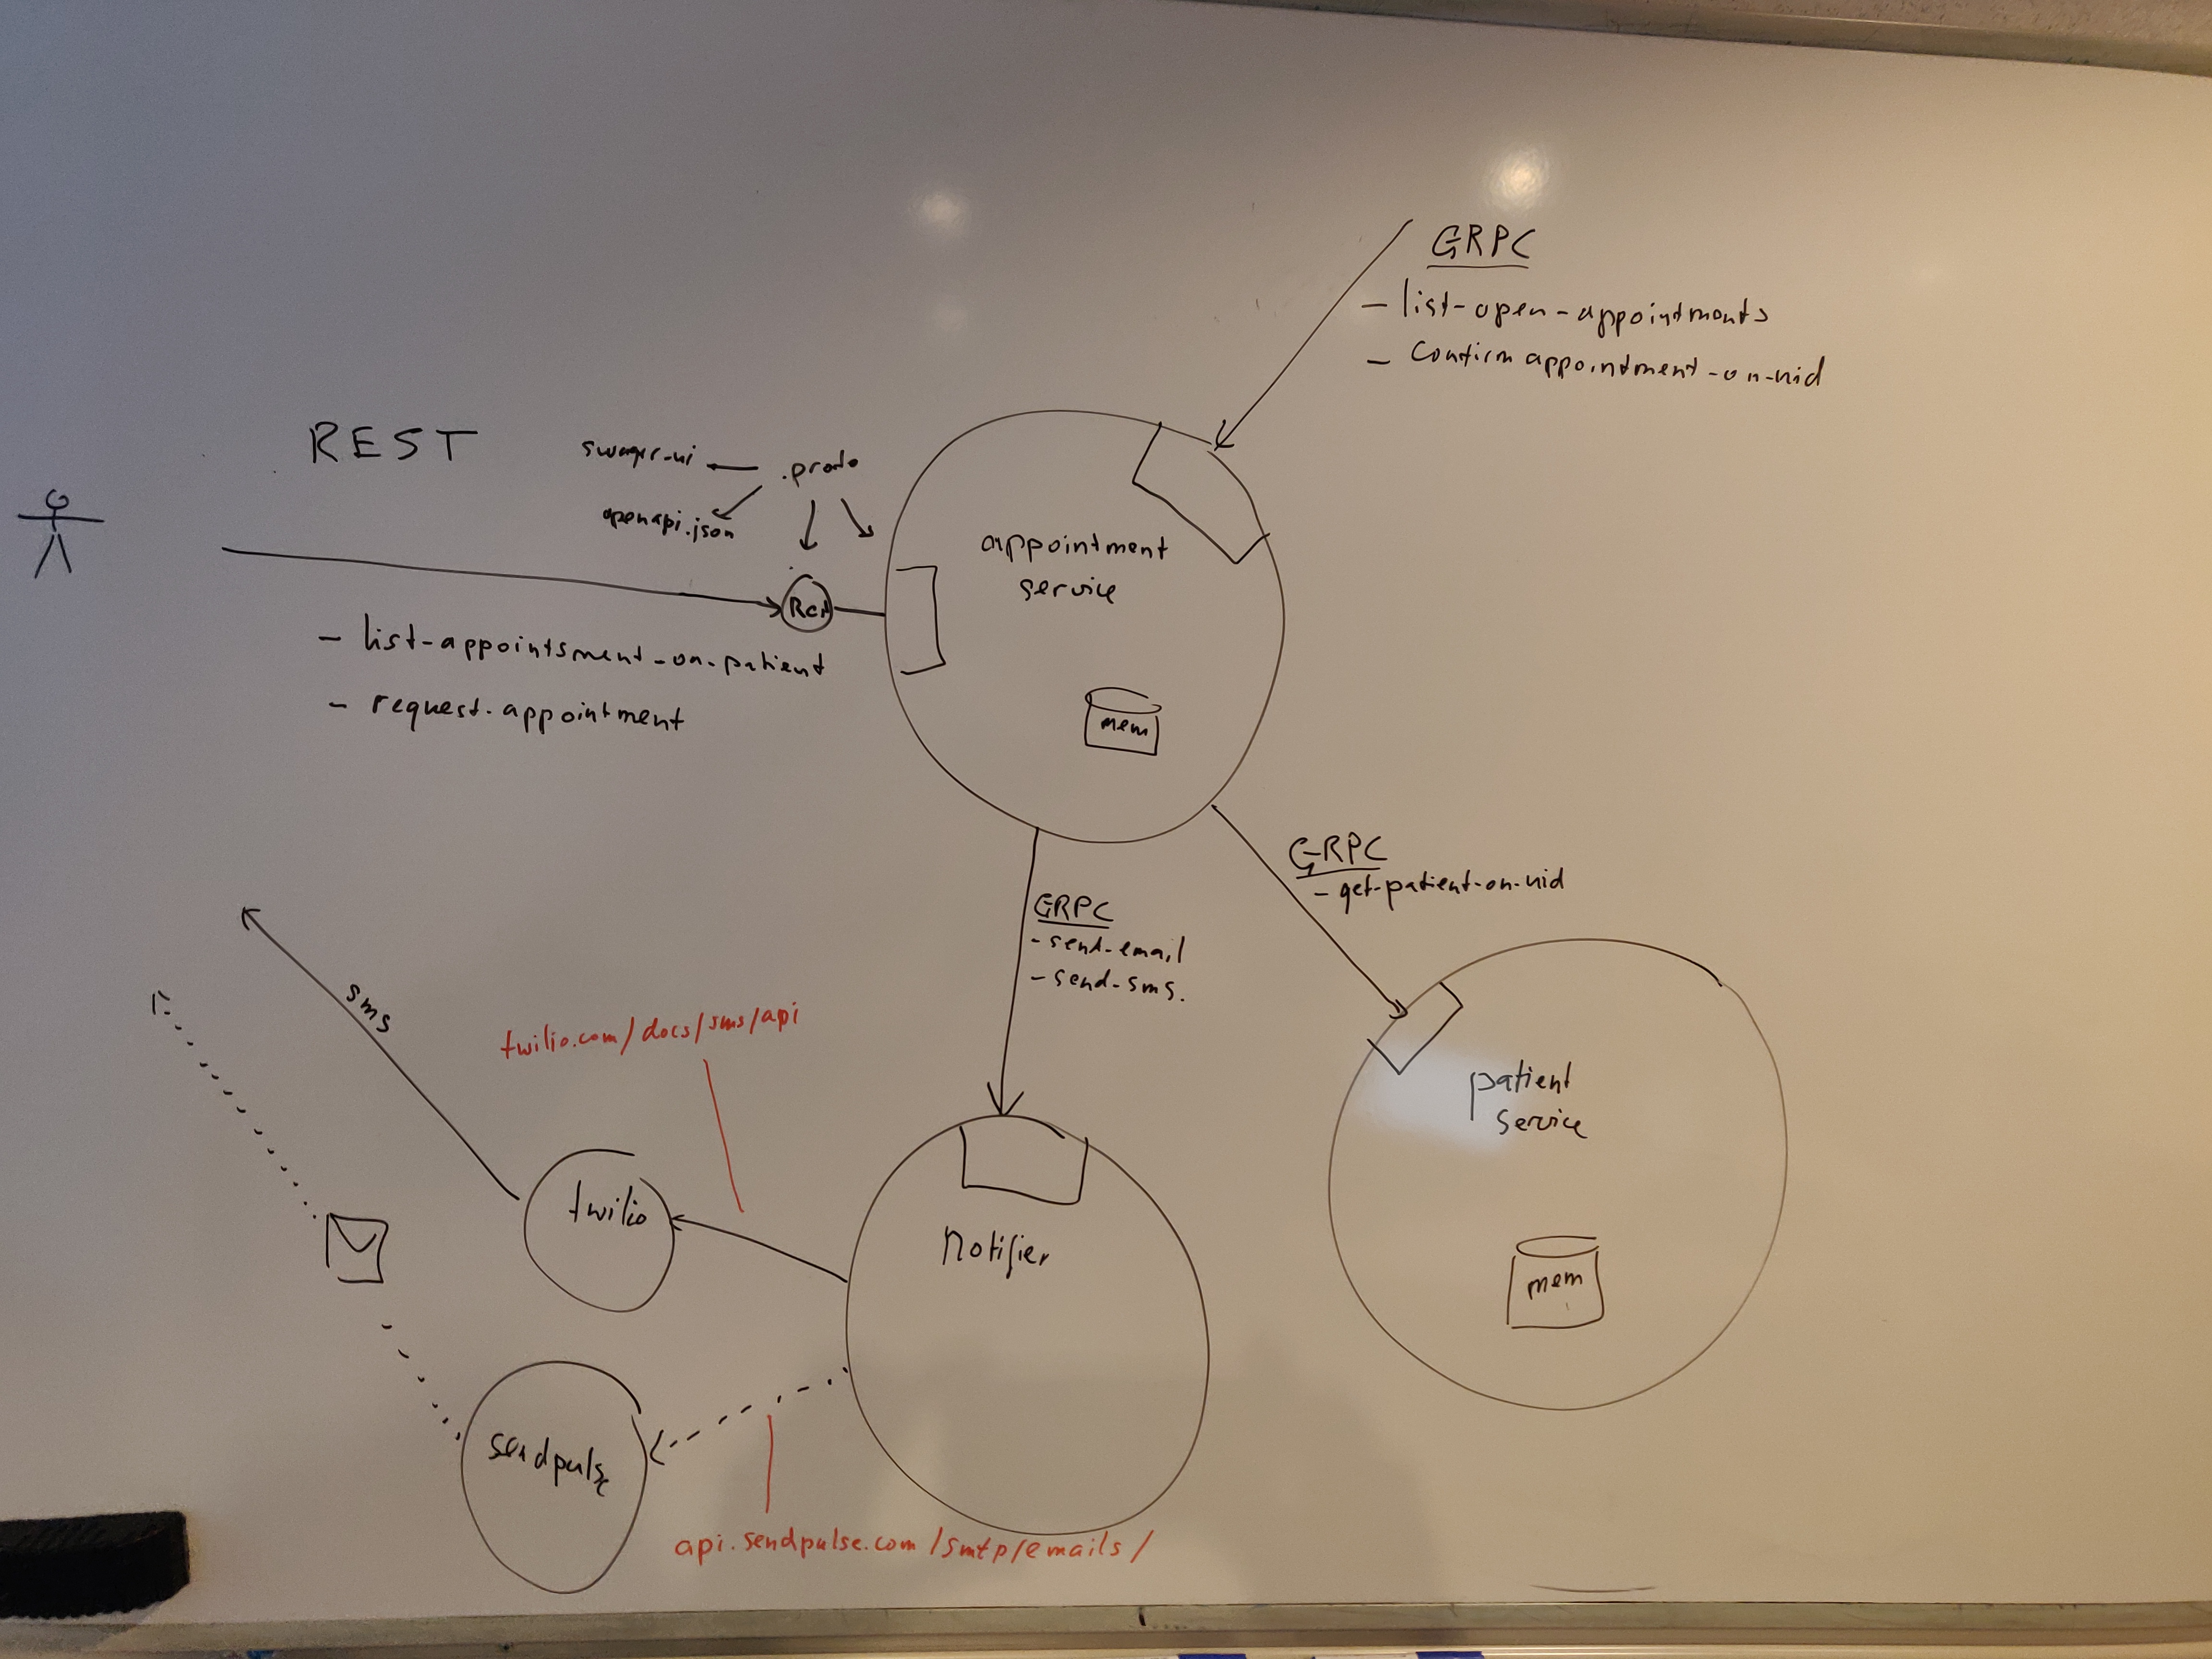 GRPC
- list-open-appointments
- Confirm appointment-on-nid
REST
swagger-ui
.proto
openapi.json
appointment
service
- list-appointsment-on-patient
- request-appointment
mem
GRPC
- get-patient-on-nid
GRPC
- send-email
- send-sms.
sms
twilio.com/docs/sms/api
patient
service
twilio
Notifier
mem
sendpulse
api.sendpulse.com/smtp/emails/